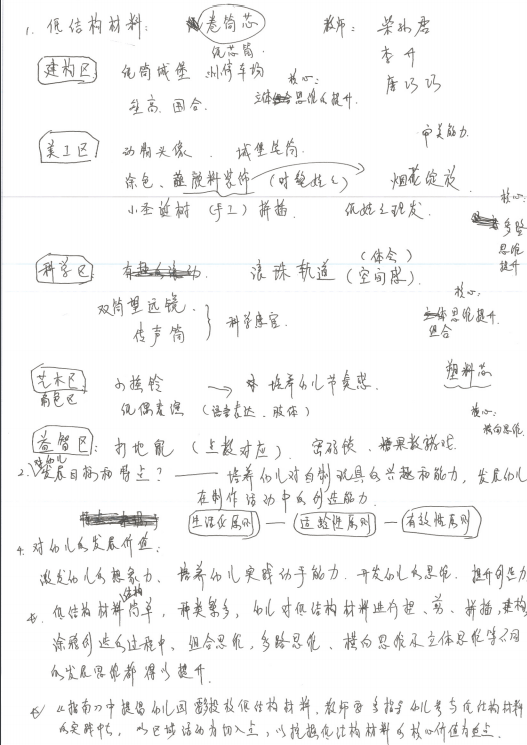 1. 低结构材料： 卷筒芯 教师：荣孙君
纸芯筒. 李丹
建构区 纸筒城堡 州停车场 核心： 唐巧巧
垒高. 围合. 立体思维及提升.
审美能力.
美工区 动物头像. 城堡笔筒.
涂色、蘸颜料装饰（对 烟花绽放. 核心：
小圣诞树（手工）拼插. 多路
思维
提升
科学区 滚珠轨道（体会）（空间感） 核心：
双筒望远镜. 思维提升.
传声筒 } 科学 组合
艺术区 小摇铃 → 培养幼儿节奏感. 塑料芯
角色区 纸偶表演（语言表达、肢体） 核心：
横向思维.
益智区： 打地鼠（点数对应）. 密码锁. 糖果数游戏.
2. 对幼儿 发展目标和特点？—— 培养幼儿对自制玩具的兴趣和能力，发展幼儿
在制作活动中的创造能力.
生活化原则 — 适龄性原则 — 有效性原则
4. 对幼儿的发展价值：
激发幼儿的想象力、培养幼儿实践动手能力. 开发幼儿的思维. 提升创造力
低结构材料结构简单，种类繁多，幼儿对低结构材料进行捏、剪、拼插，建构
涂鸦创造的过程中、组合思维，多路思维、横向思维及立体思维等不同
的发展思维都得以提升.
《指南》中提倡幼儿园要投放低结构材料. 教师要多指导幼儿参与低结构材料
的实践中去，以区域活动为切入点，以挖掘低结构材料的核心价值为重点.